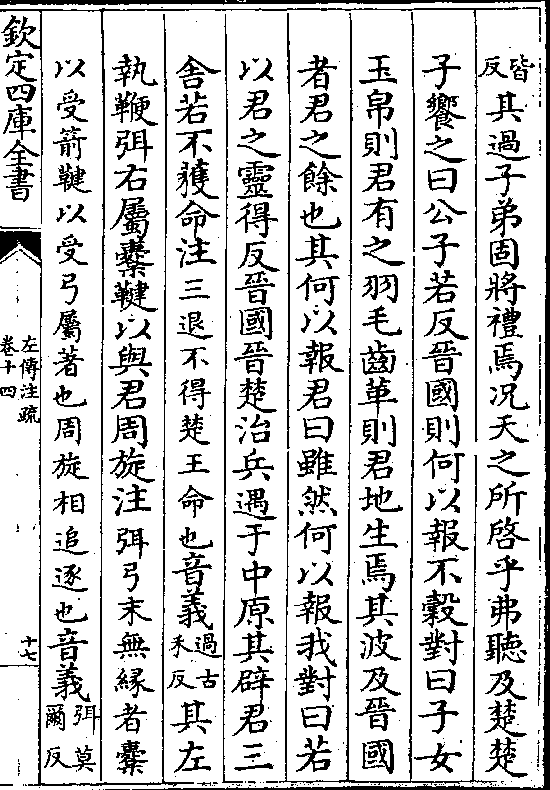 皆反其過子弟固將禮焉况天之所啓乎弗聽及楚楚
子饗之曰公子若反晉國則何以報不穀對曰子女
玉帛則君有之羽毛齒革則君地生焉其波及晉國
者君之餘也其何以報君曰雖然何以報我對曰若
以君之靈得反晉國晉楚治兵遇于中原其辟君三
舍若不獲命注三退不得楚王命也音義過古禾反其左
執鞭弭右屬櫜鞬以與君周旋注弭弓末無縁者櫜
以受箭鞬以受弓屬著也周旋相追逐也音義弭莫爾反
欽定四庫全書
左傳注疏
卷十四
十七